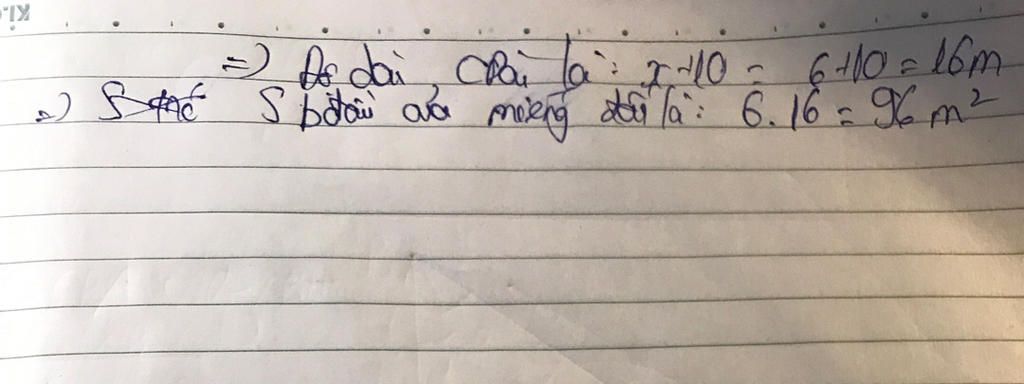 =) Độ dài chiều là: x+10 = 6+10 = 16m
=) S S b đầu của miếng đất là: 6.16 = 96 m²